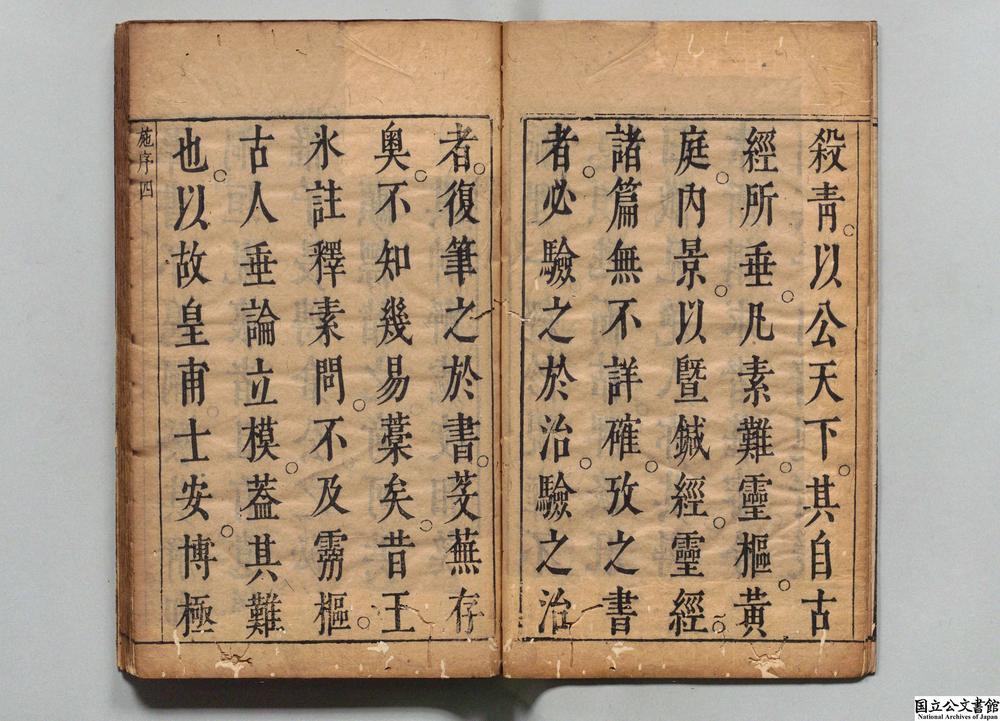 殺青以公天下其自古
經所垂凡素難靈樞黃
庭內景以暨鍼經靈經
諸篇無不詳確攷之書
者必驗之於治驗之治
者復筆之於書芟蕪存
奧不知幾易藁矣昔王
氷註釋素問不及靈樞
古人垂論立模葢其難
也以故皇甫士安博極
施序四
国立公文書館
National Archives of Japan